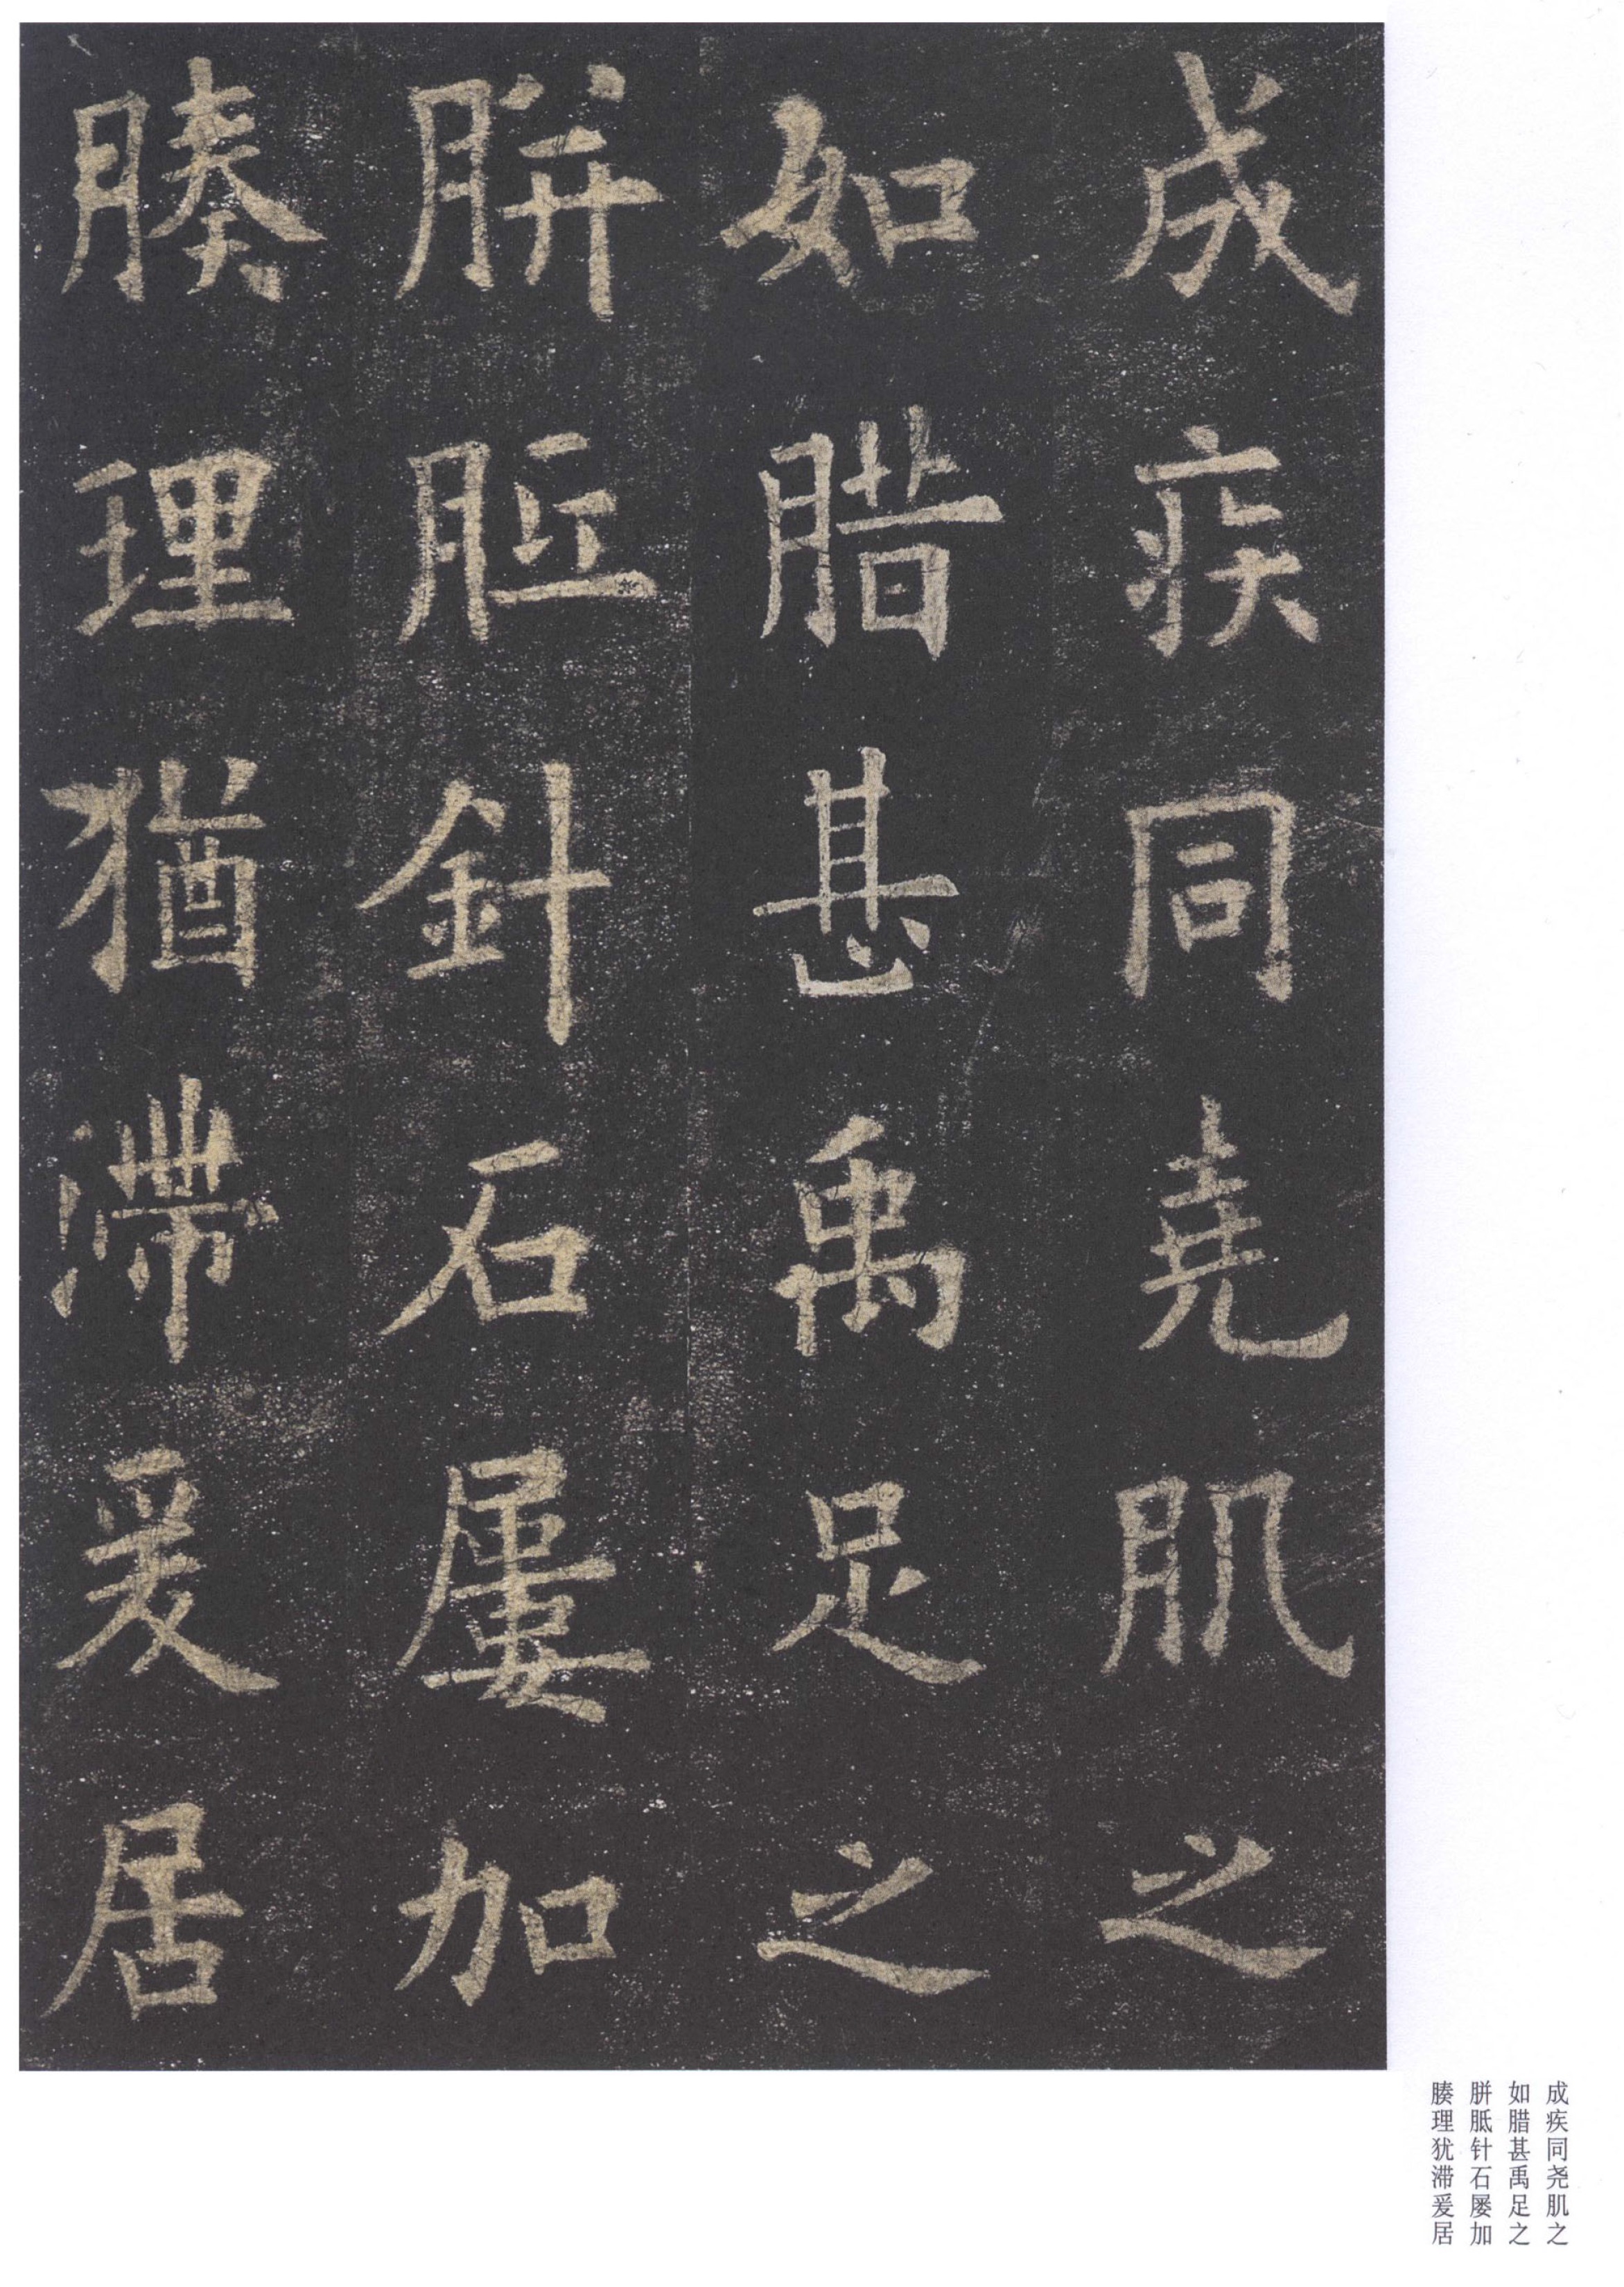 成疾同堯肌之
如腊甚禹足之
胼胝針石屢加
腠理猶滯爰居
成疾同尧肌之
如腊甚禹足之
胼胝针石屡加
腠理犹滞爰居